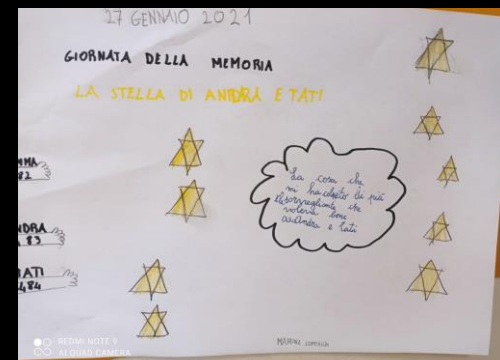 27 GENNAIO 2021
GIORNATA DELLA MEMORIA
LA STELLA DI ANDRA E TATI
MMA
82
NDRA
83
TATI
484
La cosa che
mi ha colpito di più
sorvegliante che
voleva bene
ad Andra e Tati
REDMI NOTE 9
AI QUAD CAMERA